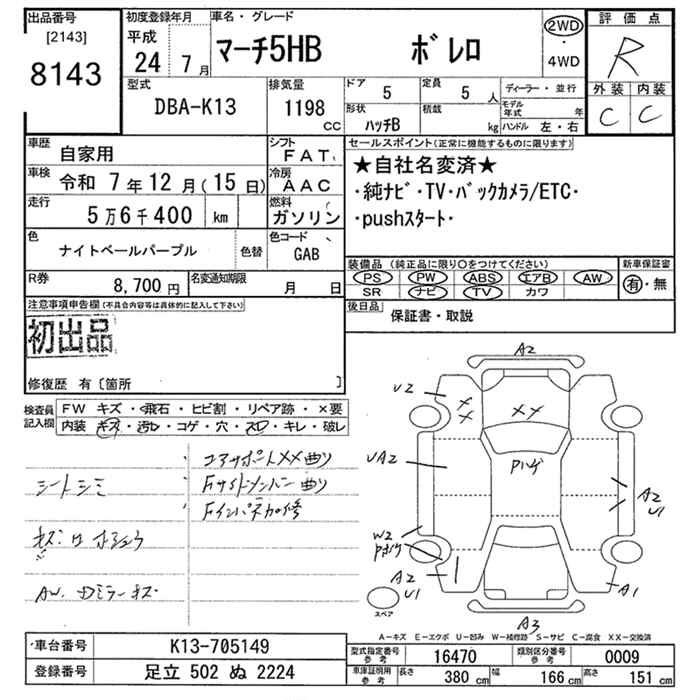 出品番号
[2143]
8143
初度登録年月
平成
24 7月
車名・グレード
マーチ5HB ボレロ
2WD
・
4WD
評価点
R
外装 内装
C C
型式
DBA-K13
排気量
1198
CC
ドア
5
定員
5 人
形状
ハッチB
積載
kg
ディーラー・並行
モデル年式 年
ハンドル 左・右
車歴
自家用
車検
令和 7年12月(15日)
走行
5万6千400 km
色
ナイトベールパープル
色替
シフト
FAT
冷房
AAC
燃料
ガソリン
色コード
GAB
R券
8,700円
名変通知期限
月 日
セールスポイント(正常に機能するものに限ります)
★自社名変済★
・純ナビ・TV・バックカメラ/ETC・
・pushスタート・
装備品(純正品に限り○をつけてください)
PS PW ABS エアB AW
SR ナビ TV カワ
新車保証書
有・無
後日品
保証書・取説
注意事項申告欄(不具合内容等は具体的に記入して下さい)
初出品
修復歴 有〔箇所 〕
検査員
記入欄
FW キズ・飛石・ヒビ割・リペア跡・×要
内装 キズ・汚レ・コゲ・穴・スレ・キレ・破レ
シートシミ
コアサポートXX曲り
Fサイドメンバー曲り
Fインパネ加修
AW.Dミラーキズ
A2
U2
XX
XX
UA2
Pハゲ
A2
U1
W2
Pハゲ
A2
U1
A1
A3
スペア
A-キズ E-エクボ U-凹み W-補修跡 S-サビ C-腐食 XX-交換済
車台番号
K13-705149
登録番号
足立 502 ぬ 2224
型式指定番号
参考
16470
類別区分番号
参考
0009
車庫証明用
参考
長さ
380 cm
幅
166 cm
高さ
151 cm